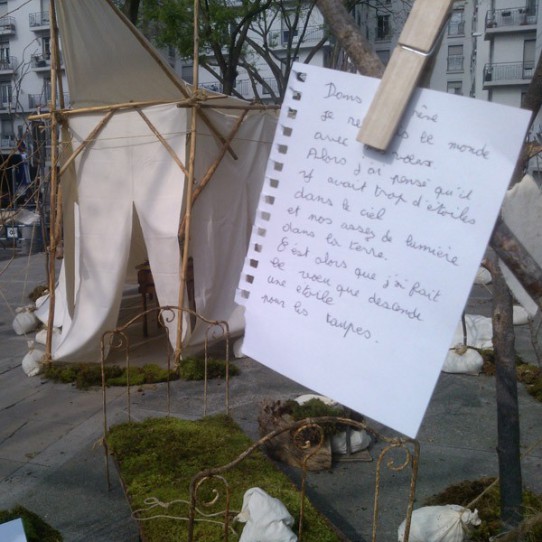 Dans
je le monde
avec
Alors j'ai pensé qu'il
y avait trop d'étoiles
dans le ciel
et nos assez de lumière
dans la terre.
C'est alors que j'ai fait
le voeu que descende
une étoile
pour les taupes.